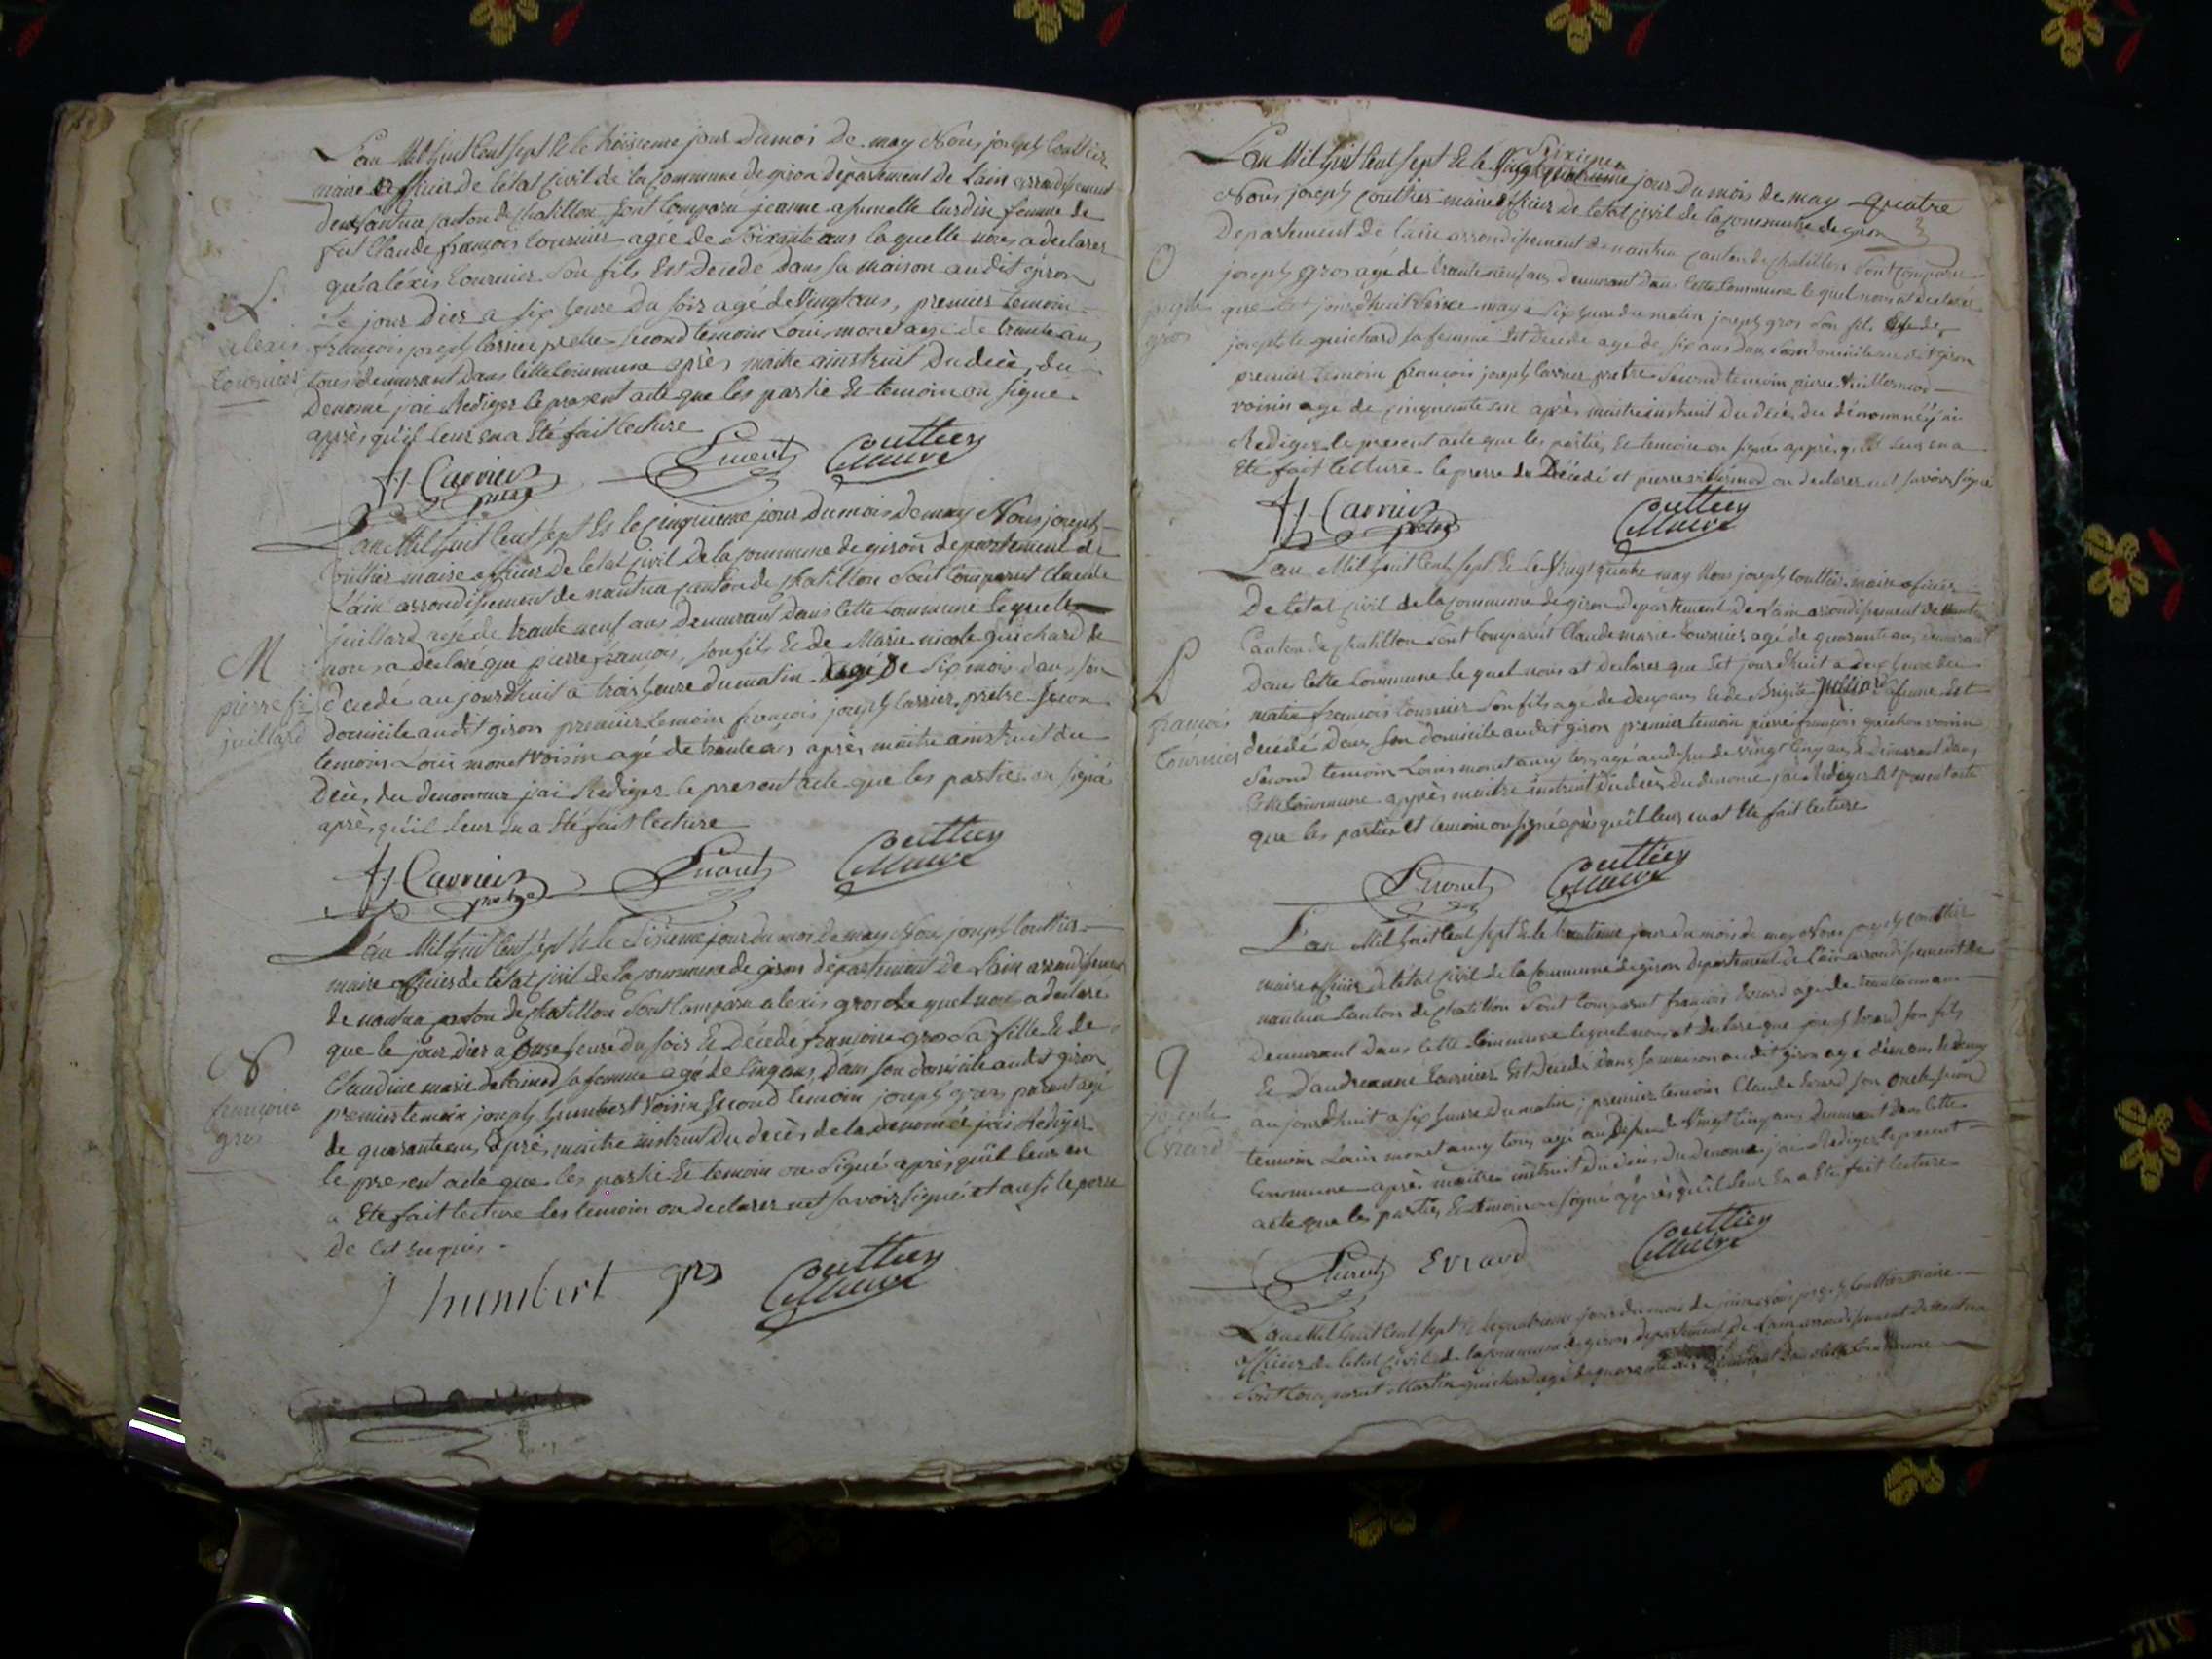 L'an Mil huit Cent sept & le troisieme jour du mois De may Nous joseph Couttier
maire officier de l'état Civil de la Commune de giron département de Lain arrondissement
de nantua canton de chatillon sont Comparu jeanne femme de
fut Claude françois tournier agée de Soixante ans laquelle nous a declarer
qu'alexis tournier Son fils Est Decedé Dans sa maison audit giron
Le jour Dier a six heure Du soir agé de vingt ans, premier temoin
françois joseph Carrier pretre second temoin Louis monet agé de trante ans
tous demeurant Dans Cette Commune après maitre ainstruit Du decè, du
Denomé j'ai Rediger le present acte que les partie Et temoin on signe
après qu'il leur en a Eté fait lecture
L.
alexis
tournier
fj Carrier pretre Lmonet Couttier Maire
L'an Mil huit Cent sept Et le cinquieme jour du mois De may Nous joseph
Couttier maire officier de letat civil de la commune de giron departement de
Lain arrondissement de nantua canton de chatillon Sont Comparut Claude
juillard agé de trante neuf ans Demeurant dans Cette Commune lequelle
nous a déclaré que pierre françois, son fils Et de Marie nicole guichard Et
decedé au jourdhuit a trois heure du matin agé De Six mois dans son
domicile audit giron premier temoin françois joseph Carrier pretre secon
temoins Louis monet voisin agé de trante ans après maitre ainstruit du
Decè, du denommer j'ai Rediger le present acte que les parties on signé
après qu'il leur en a Eté fait lecture
M
pierre fs
juillard
fj Carrier pretre Lmonet Couttier Maire
L'an Mil huit Cent Sept & le Sixieme jour du moi De may Nous joseph Couttier
maire officier de letat civil de la commune de giron departement De Lain arrondissement
de nantua canton de chatillon Sont Comparu alexis gros le quel nous a declaré
que le jour Dier a Onse heure du soir Et Décédé françoise gros Sa fille & de
Claudine marie sa femme agé de Cinq ans, dans son domicile audit giron
premier temoin joseph humbert voisin second temoin joseph gros parent agé
de quarante ans après maitre instruit Du decès de la denomé j'ai Rediger
le present acte que les partie Et temoin on Signé après qu'il leur en
a Eté fait lecture les temoins on declarer net savoir signé et ausi le perre
de cet
N
françoise
gros
j humbert gros Couttier Maire
L'an Mil huit Cent sept & le Seixieme jour Du mois de may quatre
Nous joseph Couttier maire officier de letat civil de la commune de giron
Departement de lain arrondissement de nantua canton de chatillon Sont Comparu
joseph gros agé de trante neuf ans Demeurant Dans Cette Commune le quel nous at declaré
que Cet jourdhuit Seixe may a Six heure du matin joseph gros Son fils & de
josephte guichard sa femme Est Decedé agé de six ans dans Son domicile audit giron
premier temoin françois joseph Carrier pretre Second temoin pierre
voisin agé de cinquante ans après maitre instruit Du decé Du dénommé j'ai
Rediger le present acte que les parties Et temoin on signé après qu'il leur en a
Eté fait lecture le perre du Décédé et pierre on declarer net savoir signé
O
joseph
gros
fj Carrier pretre Couttier Maire
L'an Mil huit Cent Sept & le Vingt quatre may Nous joseph Couttier maire officier
De letat civil de la commune de giron departement de Lain arrondissement de nantua
Canton de chatillon sont Comparut Claude marie tournier agé de quarante ans demeurant
Dans Cette Commune le quel nous at declarer que Cet jourdhuit a Deux heure du
matin françois tournier Son fils agé de deux ans & de Brigite juilliard sa femme Est
decédé Dans Son domicile audit giron premier temoin pierre françois guichard voisin
Second temoin Louis monet amy tous agé audesus de vingt Cinq ans & Demeurant dans
Cette Commune après maitre instruit Du decès Du denomé j'ai Rediger Cet present acte
que les parties Et temoin on signé après qu'il leur en at Eté fait lecture
P
françois
tournier
Lmonet Couttier Maire
L'an Mil huit Cent sept & le trantieme jour du mois de may Nous joseph Couttier
maire officier de l'état Civil de la Commune de giron departement de Lain arrondissement de
nantua Canton de chatillon Sont Comparut françois Evrard agé de ans
Demeurant Dans Cette Commune lequel nous at declaré que joseph Evrard son fils
& D'andreanne tournier Est Décédé Dans sa maison audit giron agé
au jourdhuit a six heure Du matin, premier temoin Claude Evrard son oncle secon
temoin Louis monet amy tous agé au desus de Vingt Cinq ans Demeurant Dans Cette
Commune après maitre instruit Du decès du denomé j'ai Rediger le present
acte que les parties Et temoin on signé après qu'il leur En a Eté fait lecture
q
joseph
Evrard
Lmonet Evrard Couttier Maire
L'an Mil huit Cent sept & le quatrieme jour du mois de juin Nous joseph Couttier Maire
officier de letat civil de la commune de giron departement de Lain arrondissement de nantua
Sont Comparut Martin guichard agé de quarante ans Demeurant Dans Cette Commune